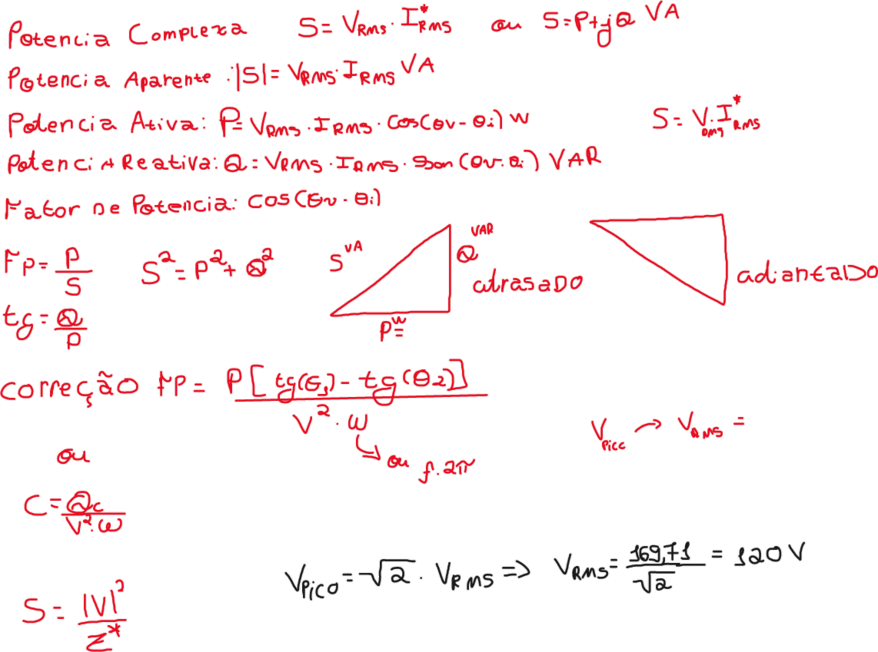 Potencia Complexa S = V_RMS . I*_RMS ou S = P+jQ VA
Potencia Aparente : |S| = V_RMS . I_RMS VA
Potencia Ativa: P = V_RMS . I_RMS . Cos(θv - θi) W
S = V_RMS . I*_RMS
Potencia Reativa: Q = V_RMS . I_RMS . Sen(θv - θi) VAR
Fator De Potencia: COS(θv - θi)
FP = P/S
S² = P² + Q²
S VA
Q VAR
P = W
atrasaDO
adiantaDO
tg = Q/P
Correção FP = P[tg(θ1) - tg(θ2)] / V² . ω
ou f.2π
V_Pico → V_RMS =
ou
C = Qc / V².ω
V_Pico = √2 . V_RMS => V_RMS = 169,71/√2 = 120 V
S = |V|² / Z*